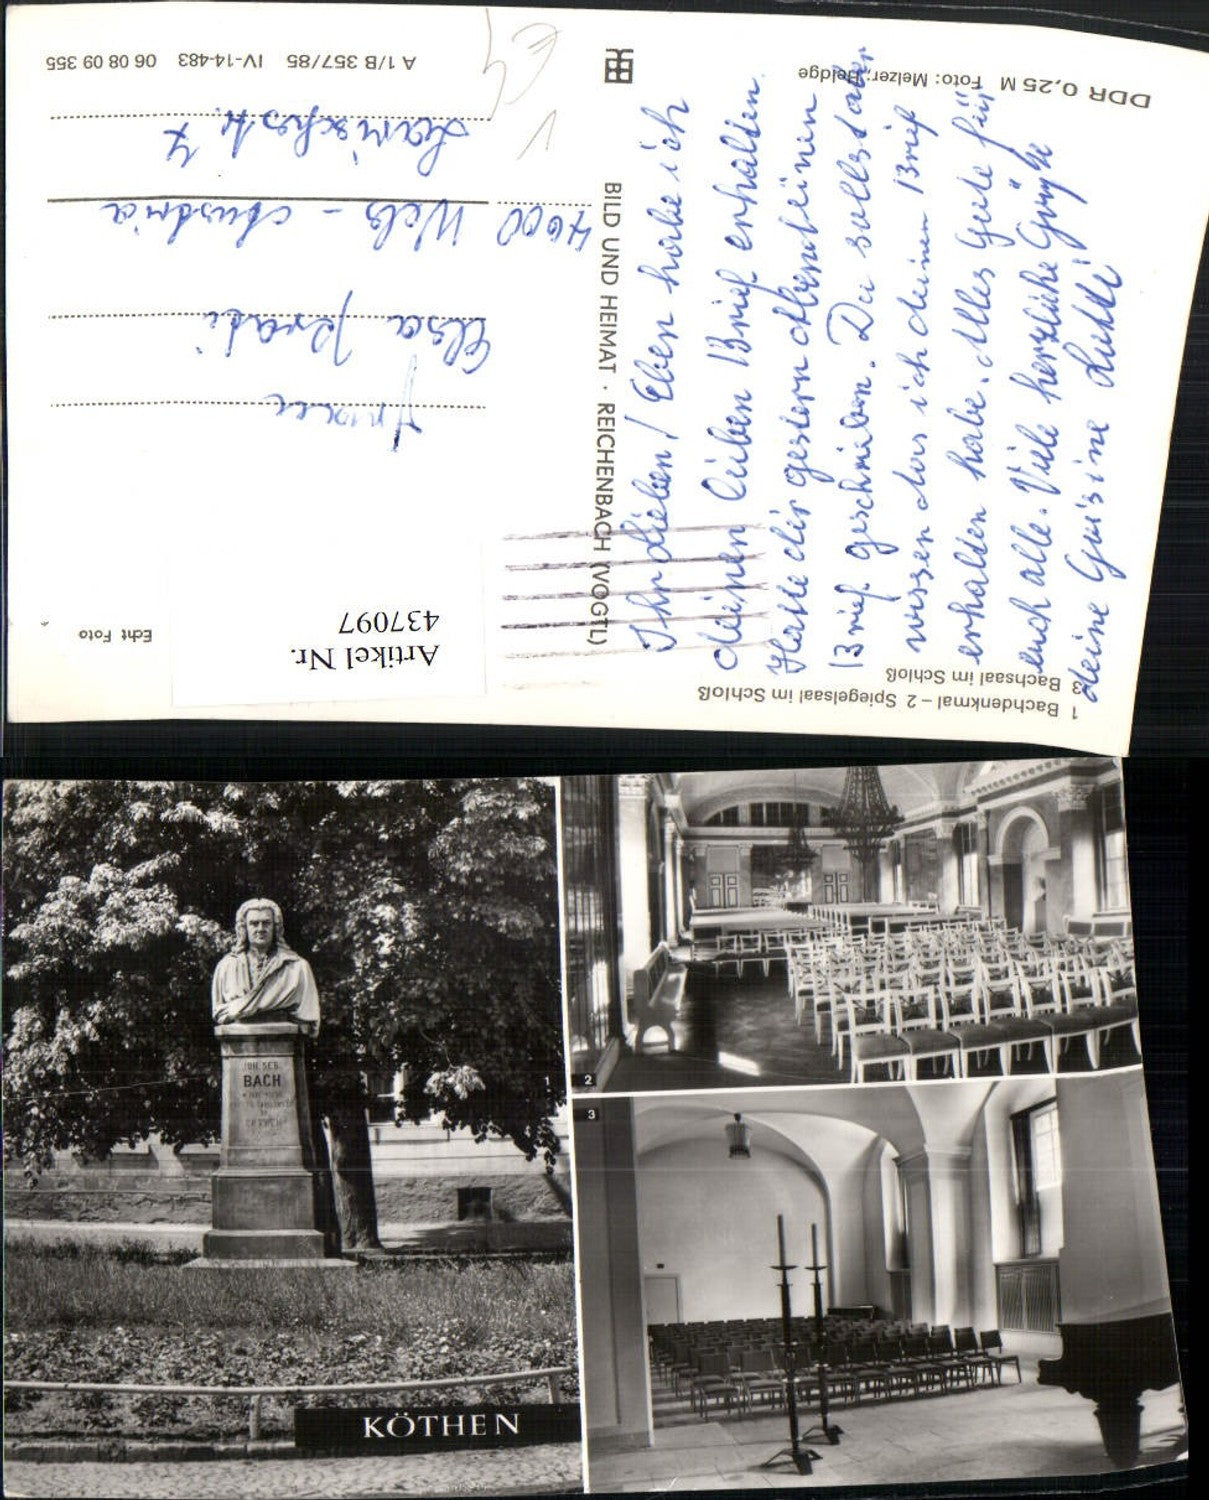 1 Bachdenkmal – 2 Spiegelsaal im Schloß
3 Bachsaal im Schloß
Ihr Lieben! Eben habe ich
deinen lieben Brief erhalten.
Hatte dir gestern Abend einen
Brief geschrieben. Du sollst aber
wissen das ich deinen Brief
erhalten habe. Alles Gute für
euch alle. Viele herzliche Grüße
deine
DDR 0,25 M Foto: Melzer; Heldge
BILD UND HEIMAT · REICHENBACH (VOGTL)
Echt Foto
Artikel Nr.
437097
Elsa
4600 Wels - Austria
A 1/B 357/85 IV-14-483 06 08 09 355
1
JOH. SEB.
BACH
KÖTHEN
2
3